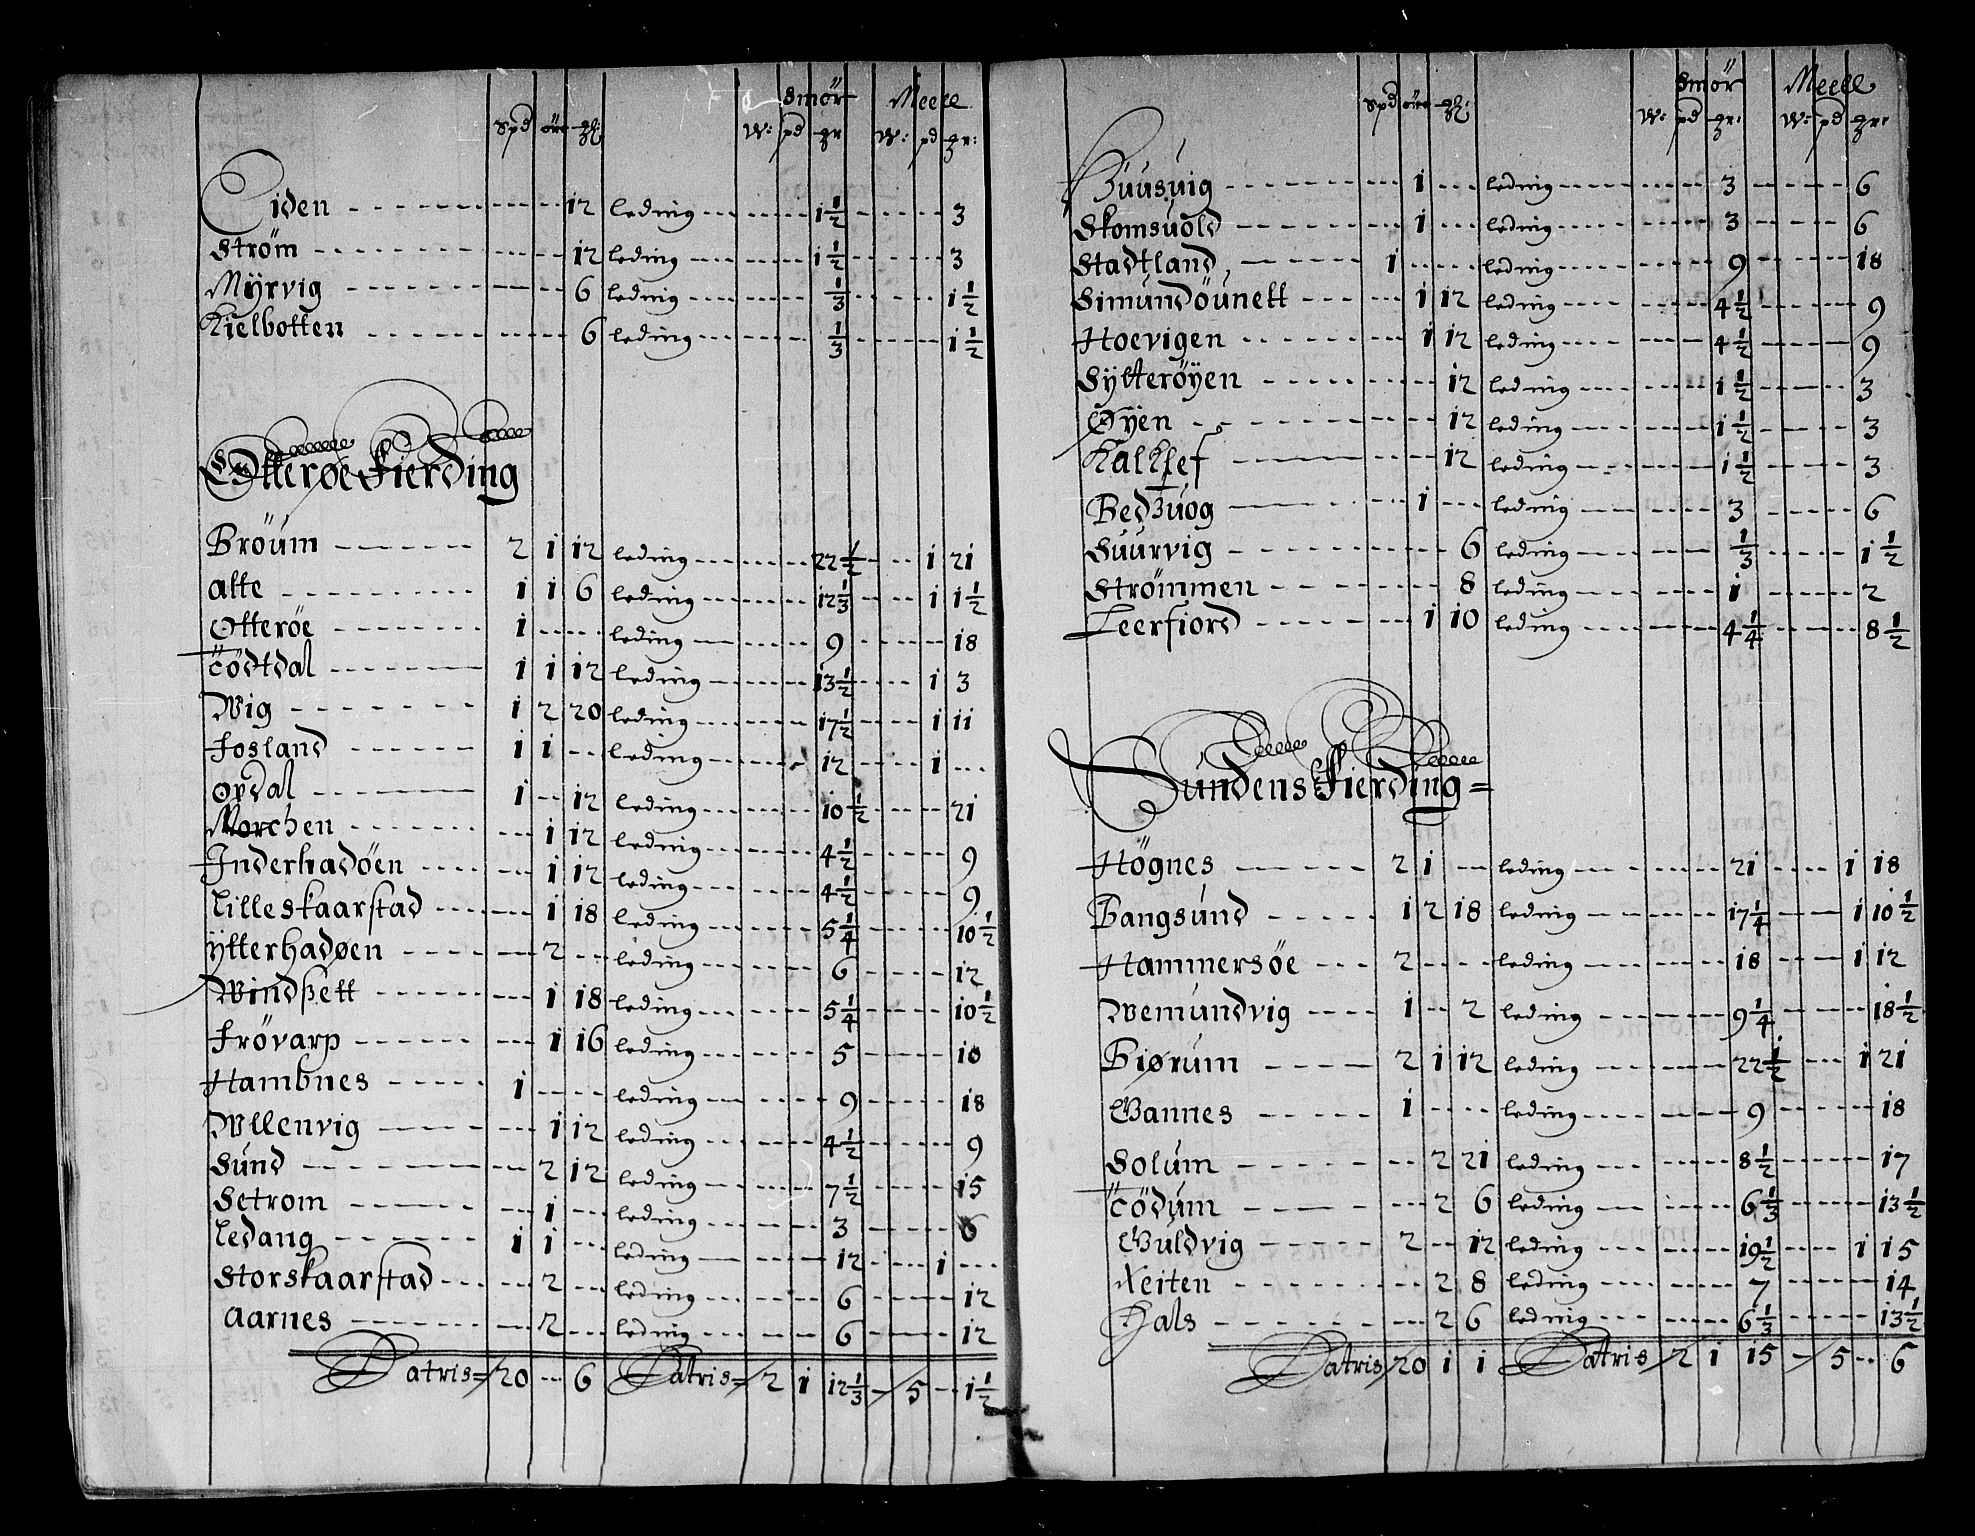 Smör Meell
Spd öre gl: W: pd gr W: pd gr:
Eiden 12 leding 1 1/2 3
Ström 12 leding 1 1/2 3
Myrvig 6 leding 1/3 1 1/2
Kielbotten 6 leding 1/3 1 1/2
Otterøe Fierding
Bröum 2 1 12 leding 22 1/2 1 21
alte 1 1 6 leding 12 1/3 1 1 1/2
Otteröe 1 leding 9 18
Födtdal 1 1 12 leding 13 1/2 1 3
Wig 1 2 20 leding 17 1/2 1 11
Fosland 1 1 leding 12 1
Ordal 1 12 leding 10 1/2 21
Morchen 1 12 leding 4 1/2 9
Inderhadöen 1 12 leding 4 1/2 9
Lilleskaarstad 1 18 leding 5 1/4 10 1/2
Ytterhadøen 2 leding 6 12
Windßett 1 18 leding 5 1/4 10 1/2
Frövarp 1 16 leding 5 10
Hambnes 1 leding 9 18
Wllenvig 1 12 leding 4 1/2 9
Sund 2 12 leding 7 1/2 15
Setrom 1 leding 3 6
Ledang 1 1 leding 12 1
Storskaarstad 2 leding 6 12
Aarnes 2 leding 6 12
Latris 20 6 Latris 2 1 12 1/3 5 1 1/2
Smör Meell
Spd öre gl: W: pd gr: W: pd gr:
Buusvig 1 leding 3 6
Skomsuold 1 leding 3 6
Stadtland 1 leding 9 18
Simundöunett 1 12 leding 4 1/2 9
Hoevigen 1 12 leding 4 1/2 9
Sylteröyen 12 leding 1 1/2 3
Øyen 12 leding 1 1/2 3
Kalksef 12 leding 1 1/2 3
Bedzuog 1 leding 3 6
Suurvig 6 leding 1/3 1 1/2
Strömmen 8 leding 1 2
Leerfiord 1 10 leding 4 1/4 8 1/2
Sundens Fierding
Högnes 2 1 leding 21 1 18
Bangsund 1 2 18 leding 17 1/4 1 10 1/2
Hammersöe 2 leding 18 1 12
Wemundvig 1 2 leding 9 1/4 18 1/2
Biørum 2 1 12 leding 22 1/2 1 21
Vannes 1 leding 9 18
Solum 2 21 leding 8 1/2 17
Födum 2 6 leding 6 1/3 13 1/2
Guldvig 2 12 leding 19 1/2 1 15
Xeiten 2 8 leding 7 14
Hals 2 6 leding 6 1/3 13 1/2
Latris 20 1 1 Latris 2 1 15 5 6